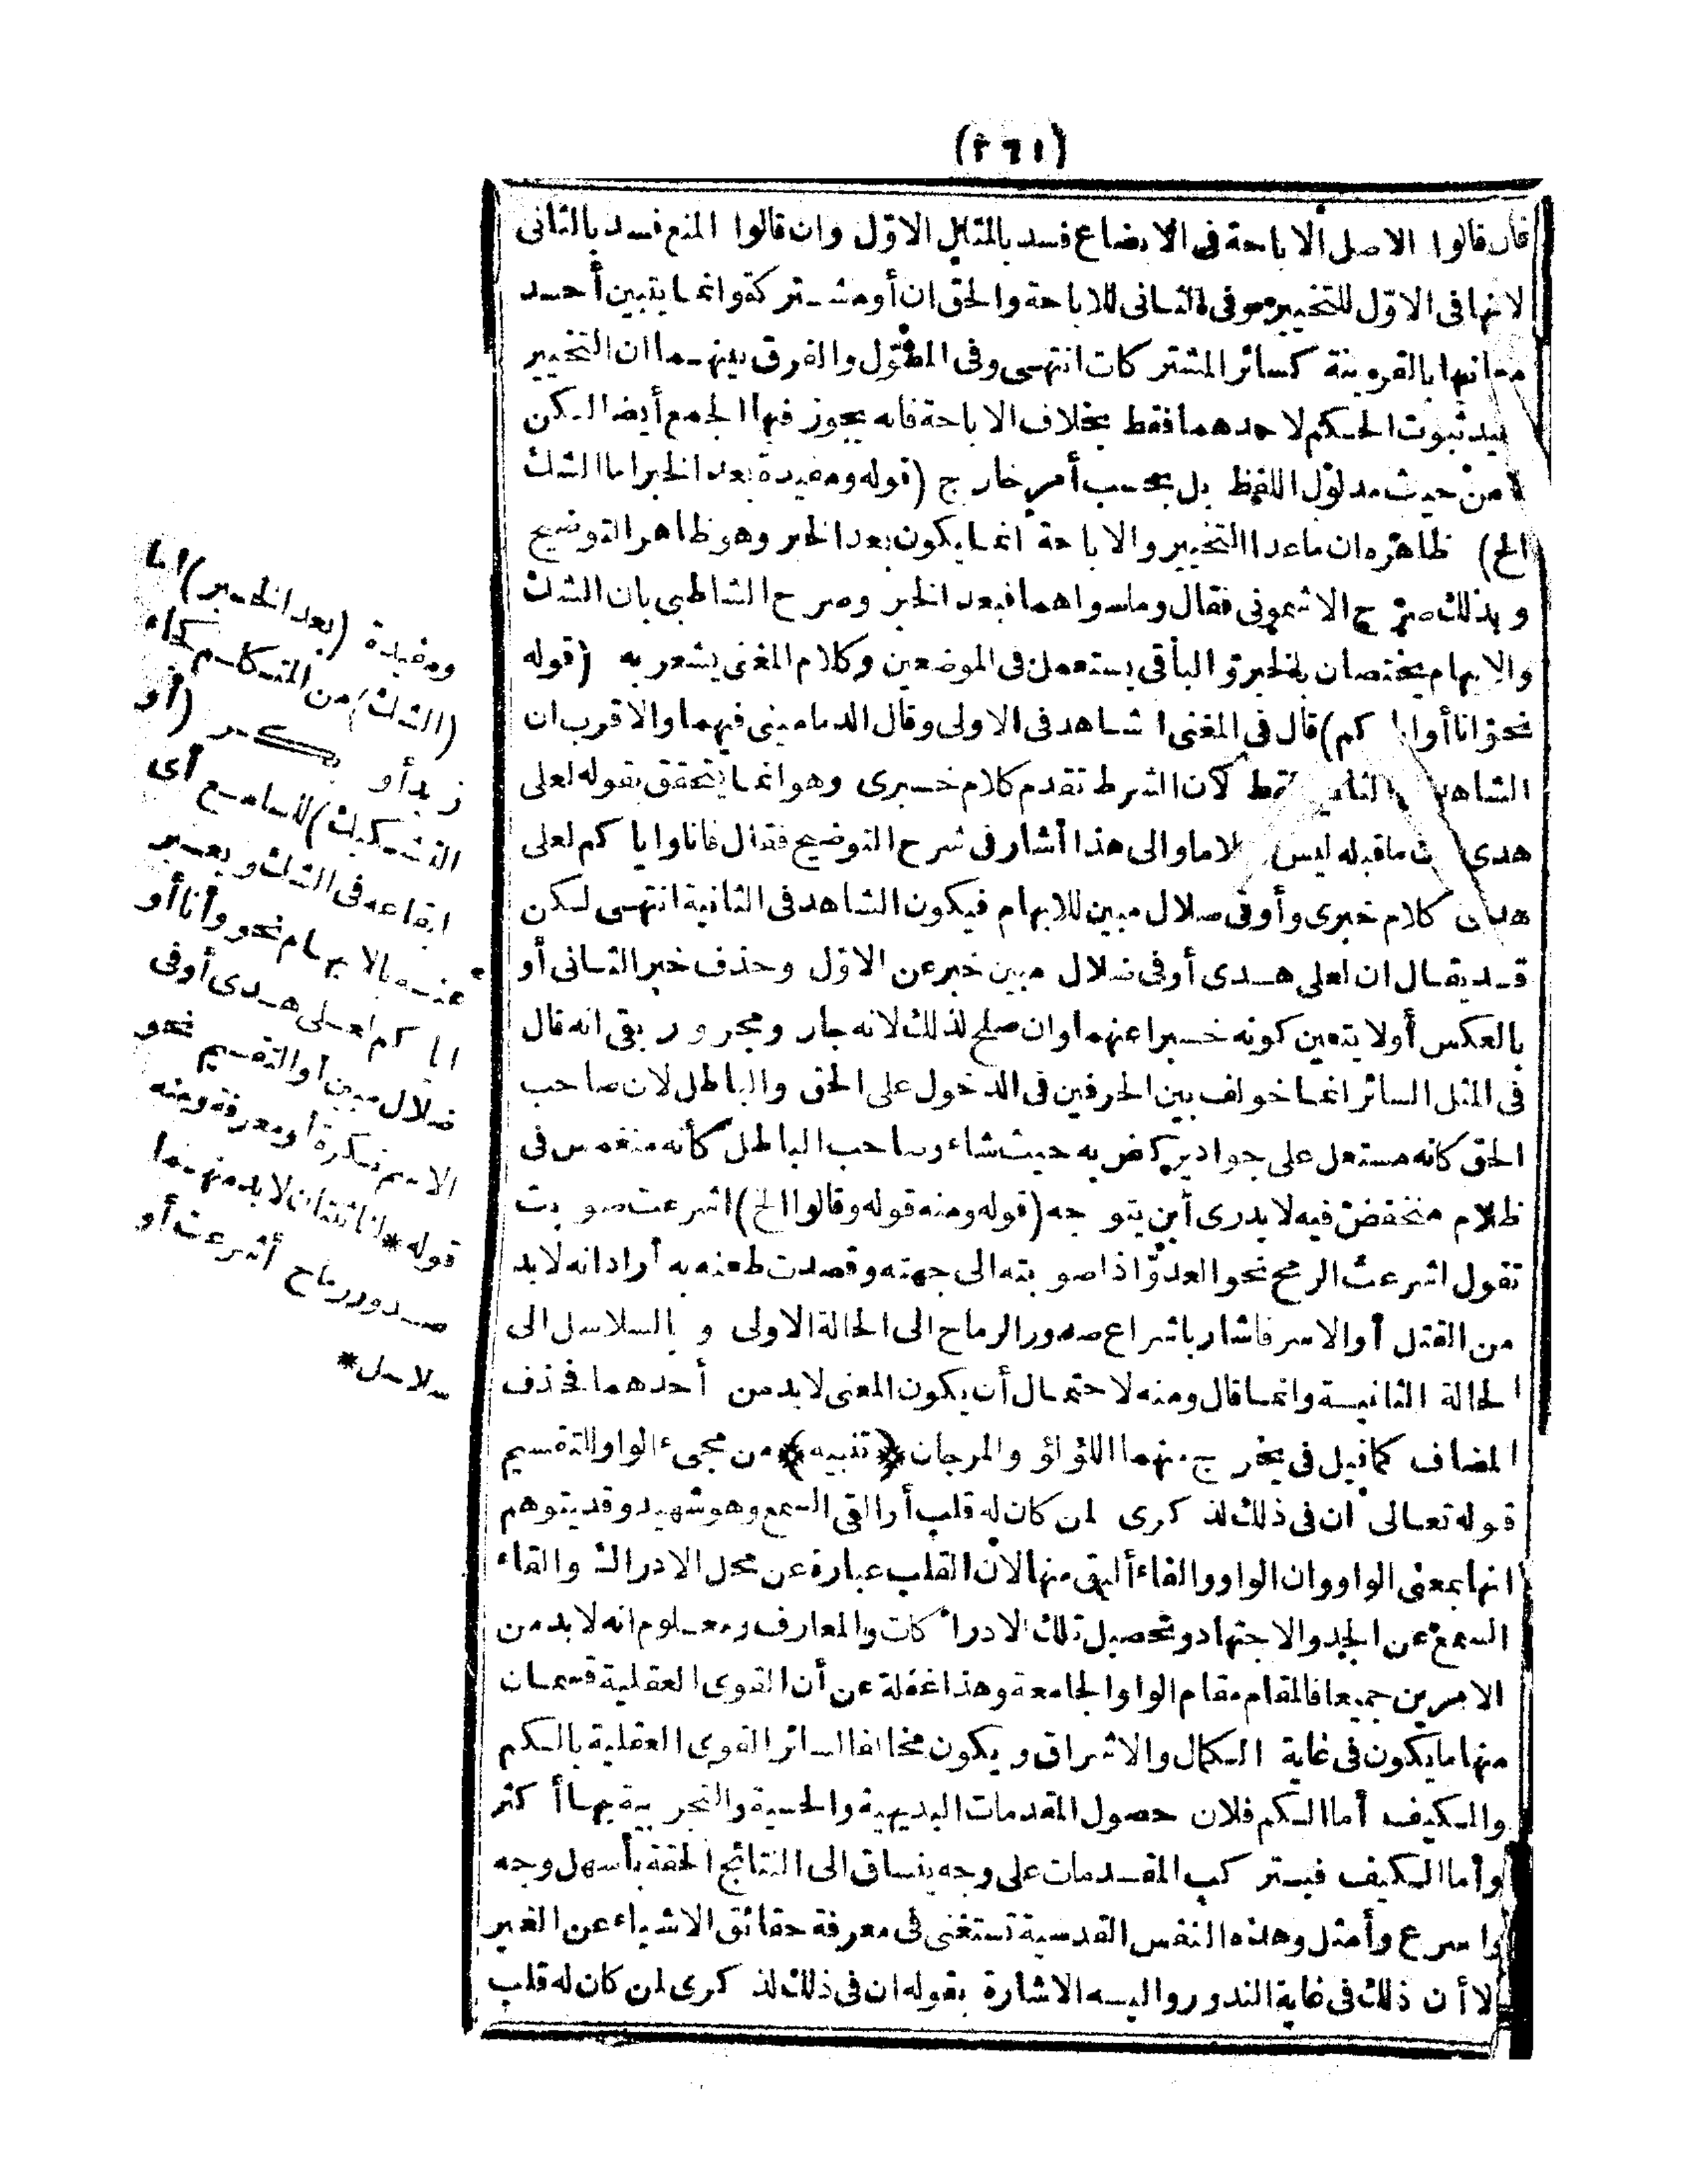 (٢٦١)
فان قالوا الاصل الاباحة فى الابضاع فسد بالمثال الاوّل وان قالوا المنع فسد بالثانى
لانها فى الاوّل للتخيير وفى الثانى للاباحة والحق ان أو مشتركة وانما يتبين أحد
معانيها بالقرينة كسائر المشتركات انتهى وفى المطوّل والفرق بينهما ان التخيير
يفيد ثبوت الحكم لاحدهما فقط بخلاف الاباحة فانه يجوز فيها الجمع أيضا لكن
لا من حيث مدلول اللفظ بل بحسب أمر خارج (قوله ومفيدة بعد الخبر اما الشك
الخ) ظاهره ان ماعدا التخيير والاباحة انما يكون بعد الخبر وهو ظاهر التوضيح
وبذلك صرّح الاشمونى فقال وما سواهما فبعد الخبر وصرح الشاطبى بان الشك
والابهام يختصان بالخبر والباقى يستعمل فى الموضعين وكلام المغنى يشعر به (قوله
نحو انا أو ايا كم) قال فى المغنى الشاهد فى الاولى وقال الدمامينى فيهما والاقرب ان
الشاهد فى الثانية فقط لان الشرط تقدم كلام خبرى وهو انما يتحقق بقوله لعلى
هدى لان ما قبله ليس كلاما والى هذا أشار فى شرح التوضيح فقال فانا وايا كم لعلى
هدى كلام خبرى وأوفى ضلال مبين للابهام فيكون الشاهد فى الثانية انتهى لكن
قد يقال ان لعلى هدى أوفى ضلال مبين خبر عن الاوّل وحذف خبر الثانى أو
بالعكس أولا يتعين كونه خبرا عنهما وان صلح لذلك لانه جار ومجرور بقى انه قال
فى المثل السائر انما خولف بين الحرفين فى الدخول على الحق والباطل لان صاحب
الحق كانه مستعل على جواد يركض به حيث شاء وصاحب الباطل كأنه منغمس فى
ظلام منخفض فيه لا يدرى أين يتوجه (قوله ومنه قوله وقالوا الخ) اشرعت صوبت
تقول اشرعت الرمح نحو العدوّ اذا صوبته الى جهته وقصدت طعنه به أراد انه لابد
من القتل أو الاسر فاشار باشراع صدور الرماح الى الحالة الاولى وبالسلاسل الى
الحالة الثانية وانما قال ومنه لاحتمال أن يكون المعنى لابد من أحدهما فحذف
المضاف كما قيل فى يخرج منهما اللؤلؤ والمرجان ﴿تنبيه﴾ من مجىء الواو للتقسيم
قوله تعالى ان فى ذلك لذكرى لمن كان له قلب أو القى السمع وهو شهيد وقد يتوهم
انها بمعنى الواو وان الواو والفاء أليق منها لان القلب عبارة عن محل الادراك والقاء
السمع عن الجد والاجتهاد وتحصيل تلك الادراكات والمعارف ومعلوم انه لابد من
الامرين جميعا فالمقام مقام الواو الجامعة وهذا غفلة عن أن القوى العقلية قسمان
منها ما يكون فى غاية الكمال والاشراق ويكون مخالفا لسائر القوى العقلية بالكم
والكيف أما الكم فلان حصول المقدمات البديهية والحسية والتجريبية بها أكثر
وأما الكيف فيتركب المقدمات على وجه ينساق الى النتائج الحقة بأسهل وجه
واسرع وأمثل وهذه النفس القدسية تستغنى فى معرفة حقائق الاشياء عن الغير
الا أن ذلك فى غاية الندور واليه الاشارة بقوله ان فى ذلك لذكرى لمن كان له قلب
ومفيدة (بعد الخبر) اما
(الشك) من المتكلم كجاء
زيد أو بكر (أو
التشكيك) للسامع أى
ايقاعه فى الشك ويعبر
عنه بالابهام نحو وأنا أو
ايا كم لعلى هدى أوفى
ضلال مبين أو التقسيم نحو
الاسم نكرة أو معرفة ومنه
قوله * لنا ثنتان لابد منهما
صدور رماح أشرعت أو
سلاسل *